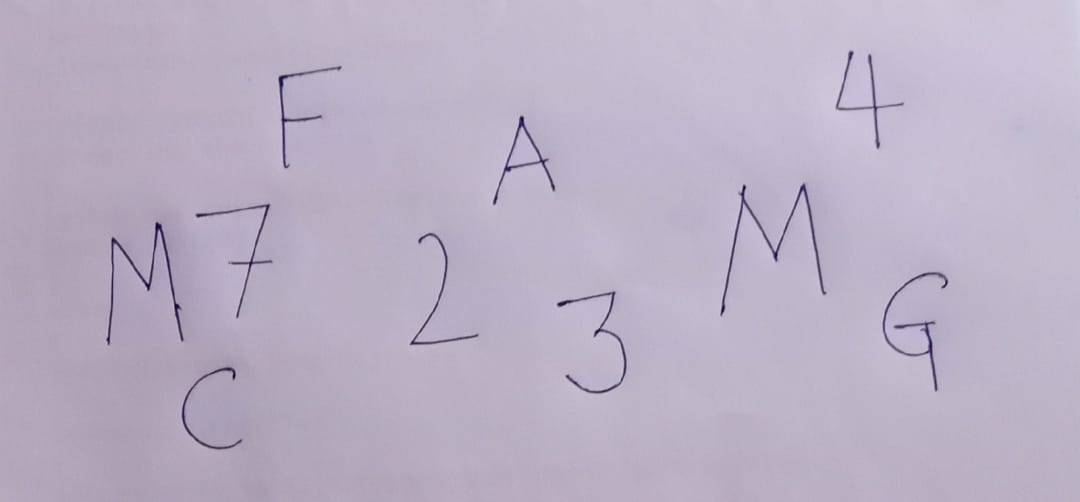 F A 4
M 7 2 3 M G
C